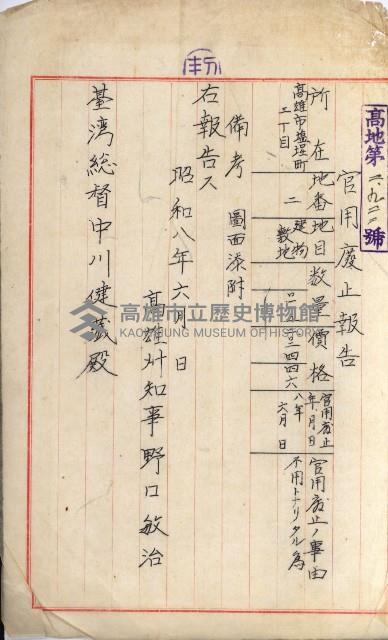 高地第一九二二號
官用廢止報告
所在地番地目數量價格官用廢止年月日官用廢止ノ事由
高雄市塩埕町二丁目 二 建物敷地 八年六月 日 不用トナリタル為
備考 圖面添附
右報告ス
昭和八年六月 日
高雄州知事野口敏治
臺湾総督中川健蔵殿
高雄市立歷史博物館
KAOHSIUNG MUSEUM OF HISTORY